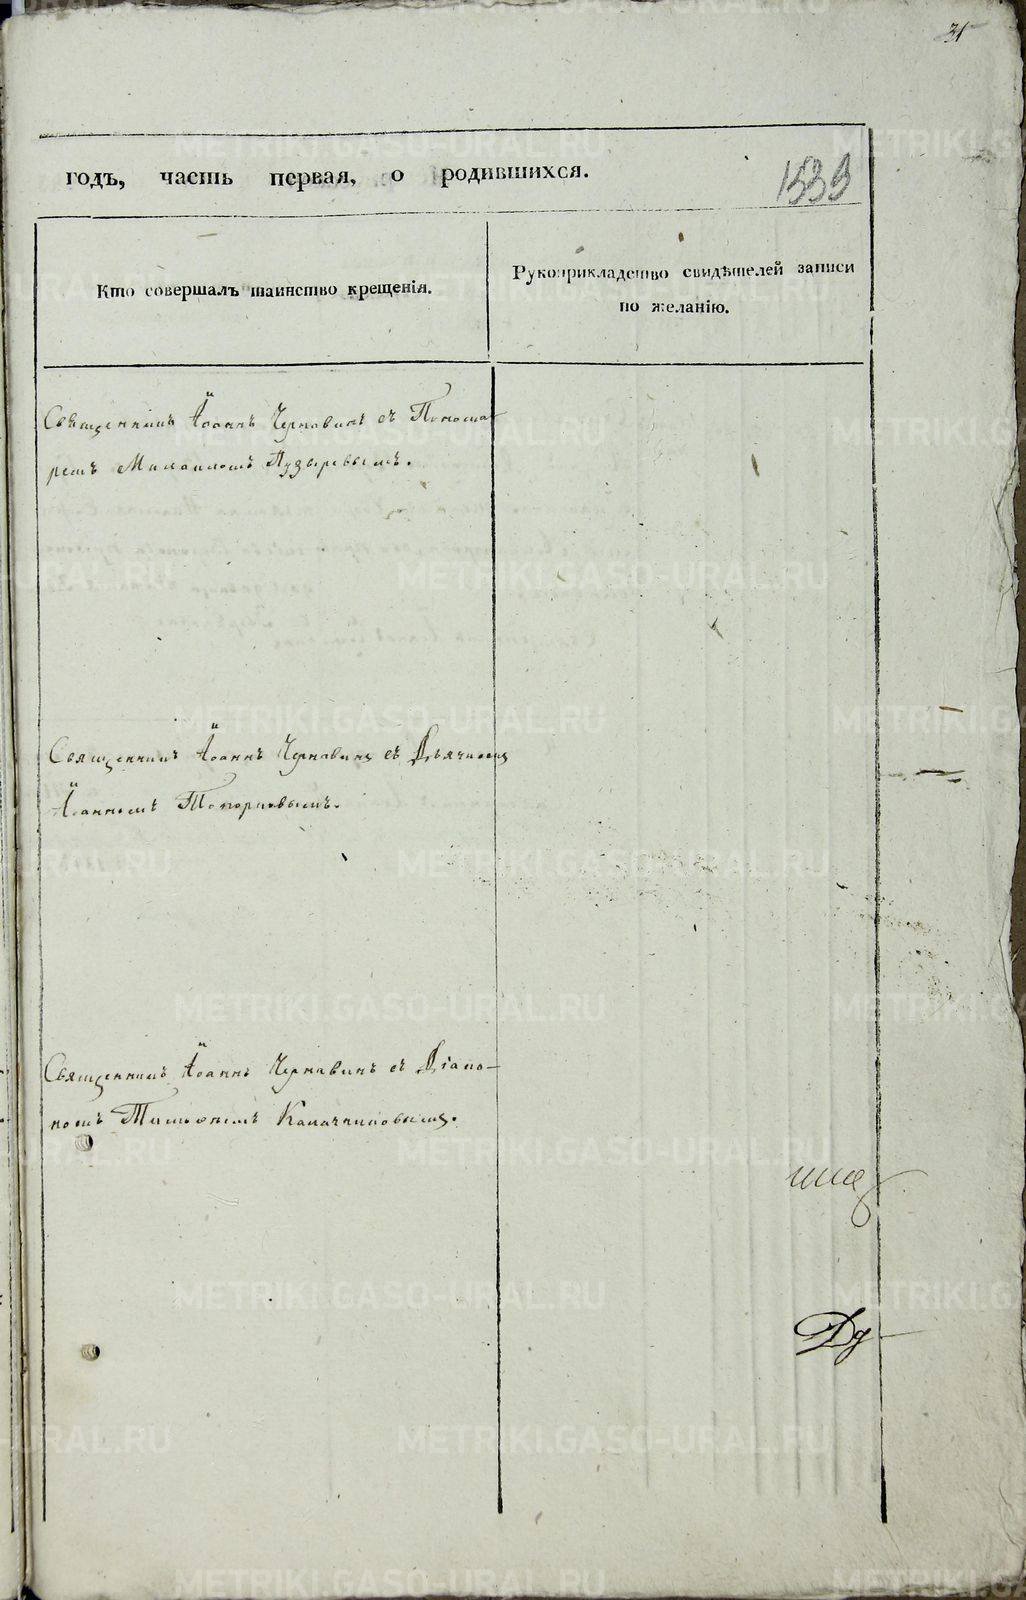 31
годъ, часть первая, о родившихся.
1539
Кто совершалъ таинство крещенія.
Рукоприкладство свидѣтелей записи
по желанію.
Священникъ Іоаннъ Чернавинъ съ Понома-
ремъ Михаиломъ Пузыревымъ.
Священникъ Іоаннъ Чернавинъ съ Дьячкомъ
Іоанномъ Топорковымъ.
Священникъ Іоаннъ Чернавинъ съ Діако-
номъ Калачниковымъ.
METRIKI.GASO-URAL.RU